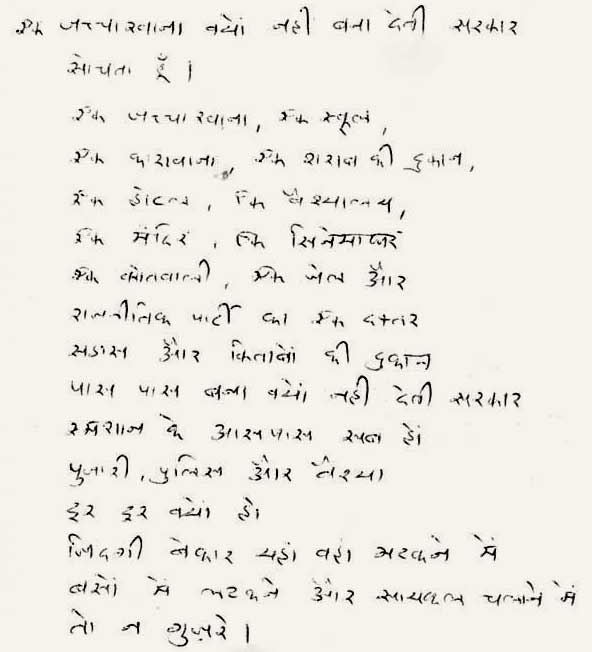 एक जच्चाखाना क्यों नहीं बना देती सरकार
सोचता हूँ ।
एक जच्चाखाना, एक स्कूल,
एक कारखाना, एक शराब की दुकान,
एक होटल, एक वैश्यालय,
एक मंदिर, एक सिनेमाघर
एक कोतवाली, एक जेल और
राजनीतिक पार्टी का एक दफ्तर
सडास और किताबों की दुकान
पास पास बना क्यों नहीं देती सरकार
स्मशान के आसपास सब हों
पुजारी, पुलिस और वैश्या
दूर दूर क्यों हों
जिंदगी बेकार यहां वहां भटकने में
बसों में लटकने और सायकल चलाने में
तो न गुज़रे ।